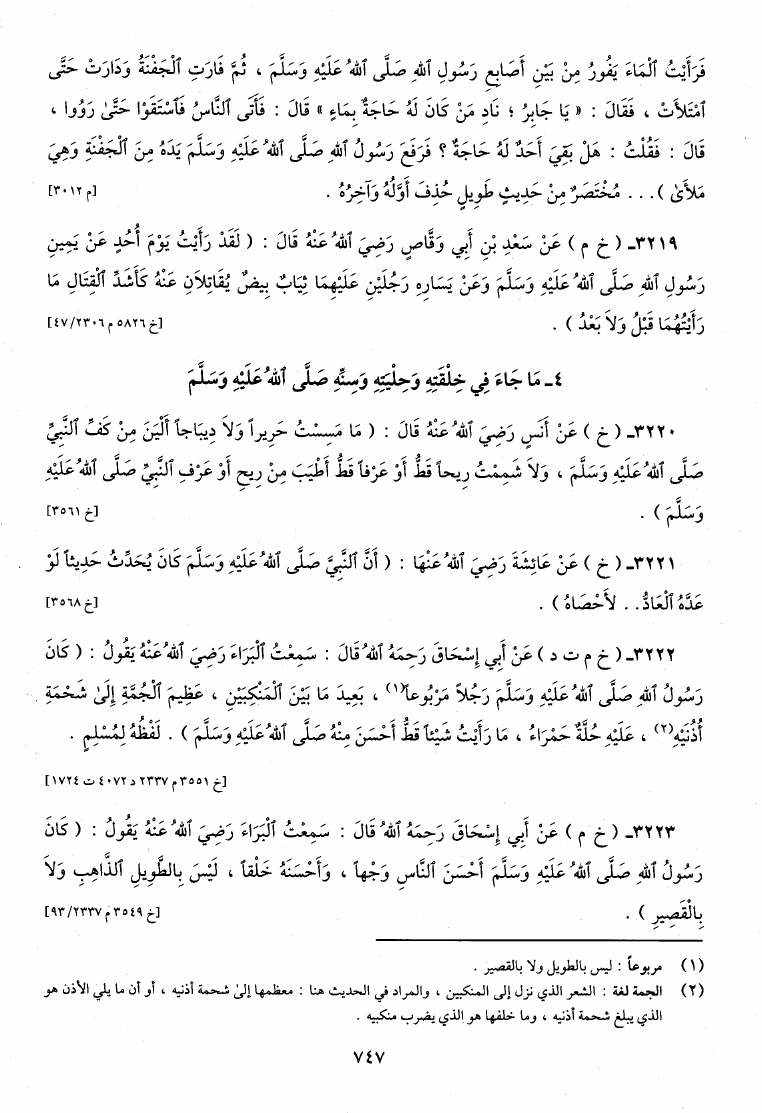 فَرَأَيْتُ ٱلْمَاءَ يَفُورُ مِنْ بَيْنِ أَصَابِعِ رَسُولِ ٱللهِ صَلَّى ٱللهُ عَلَيْهِ وَسَلَّمَ ، ثُمَّ فَارَتِ ٱلْجَفْنَةُ وَدَارَتْ حَتَّى
ٱمْتَلأَتْ ، فَقَالَ : « يَا جَابِرُ ؛ نَادِ مَنْ كَانَ لَهُ حَاجَةٌ بِمَاءٍ » قَالَ : فَأَتَى ٱلنَّاسُ فَٱسْتَقَوْا حَتَّى رَوُوا ،
قَالَ : فَقُلْتُ : هَلْ بَقِيَ أَحَدٌ لَهُ حَاجَةٌ ؟ فَرَفَعَ رَسُولُ ٱللهِ صَلَّى ٱللهُ عَلَيْهِ وَسَلَّمَ يَدَهُ مِنَ ٱلْجَفْنَةِ وَهِيَ
مَلأَىٰ ) . . . مُخْتَصَرٌ مِنْ حَدِيثٍ طَوِيلٍ حُذِفَ أَوَّلُهُ وَآخِرُهُ . [م ٣٠١٢]
٣٢١٩ـ ( خ م ) عَنْ سَعْدِ بْنِ أَبِي وَقَّاصٍ رَضِيَ ٱللهُ عَنْهُ قَالَ : ( لَقَدْ رَأَيْتُ يَوْمَ أُحُدٍ عَنْ يَمِينِ
رَسُولِ ٱللهِ صَلَّى ٱللهُ عَلَيْهِ وَسَلَّمَ وَعَنْ يَسَارِهِ رَجُلَيْنِ عَلَيْهِمَا ثِيَابٌ بِيضٌ يُقَاتِلاَنِ عَنْهُ كَأَشَدِّ ٱلْقِتَالِ مَا
رَأَيْتُهُمَا قَبْلُ وَلاَ بَعْدُ ) . [خ ٥٨٢٦ م ٤٧/٢٣٠٦]
٤ـ مَا جَاءَ فِي خِلْقَتِهِ وَحِلْيَتِهِ وَسِنِّهِ صَلَّى ٱللهُ عَلَيْهِ وَسَلَّمَ
٣٢٢٠ـ ( خ ) عَنْ أَنَسٍ رَضِيَ ٱللهُ عَنْهُ قَالَ : ( مَا مَسِسْتُ حَرِيراً وَلاَ دِيبَاجاً أَلْيَنَ مِنْ كَفِّ ٱلنَّبِيِّ
صَلَّى ٱللهُ عَلَيْهِ وَسَلَّمَ ، وَلاَ شَمِمْتُ رِيحاً قَطُّ أَوْ عَرْفاً قَطُّ أَطْيَبَ مِنْ رِيحِ أَوْ عَرْفِ ٱلنَّبِيِّ صَلَّى ٱللهُ عَلَيْهِ
وَسَلَّمَ ) . [خ ٣٥٦١]
٣٢٢١ـ ( خ ) عَنْ عَائِشَةَ رَضِيَ ٱللهُ عَنْهَا : ( أَنَّ ٱلنَّبِيَّ صَلَّى ٱللهُ عَلَيْهِ وَسَلَّمَ كَانَ يُحَدِّثُ حَدِيثاً لَوْ
عَدَّهُ ٱلْعَادُّ. . لأَحْصَاهُ ) . [خ ٣٥٦٨]
٣٢٢٢ـ ( خ م ت د ) عَنْ أَبِي إِسْحَاقَ رَحِمَهُ ٱللهُ قَالَ : سَمِعْتُ ٱلْبَرَاءَ رَضِيَ ٱللهُ عَنْهُ يَقُولُ : ( كَانَ
رَسُولُ ٱللهِ صَلَّى ٱللهُ عَلَيْهِ وَسَلَّمَ رَجُلاً مَرْبُوعاً(١) ، بَعِيدَ مَا بَيْنَ ٱلْمَنْكِبَيْنِ ، عَظِيمَ ٱلْجُمَّةِ إِلَىٰ شَحْمَةِ
أُذُنَيْهِ(٢) ، عَلَيْهِ حُلَّةٌ حَمْرَاءُ ، مَا رَأَيْتُ شَيْئاً قَطُّ أَحْسَنَ مِنْهُ صَلَّى ٱللهُ عَلَيْهِ وَسَلَّمَ ) . لَفْظُهُ لِمُسْلِمٍ .
[خ ٣٥٥١ م ٢٣٣٧ د ٤٠٧٢ ت ١٧٢٤]
٣٢٢٣ـ ( خ م ) عَنْ أَبِي إِسْحَاقَ رَحِمَهُ ٱللهُ قَالَ : سَمِعْتُ ٱلْبَرَاءَ رَضِيَ ٱللهُ عَنْهُ يَقُولُ : ( كَانَ
رَسُولُ ٱللهِ صَلَّى ٱللهُ عَلَيْهِ وَسَلَّمَ أَحْسَنَ ٱلنَّاسِ وَجْهاً ، وَأَحْسَنَهُ خَلْقاً ، لَيْسَ بِالطَّوِيلِ ٱلذَّاهِبِ وَلاَ
بِٱلْقَصِيرِ ) . [خ ٣٥٤٩ م ٩٣/٢٣٣٧]
(١) مربوعاً : ليس بالطويل ولا بالقصير .
(٢) الجمة لغة : الشعر الذي نزل إلى المنكبين ، والمراد في الحديث هنا : معظمها إلىٰ شحمة أذنيه ، أو أن ما يلي الأذن هو
الذي يبلغ شحمة أذنيه ، وما خلفها هو الذي يضرب منكبيه .
٧٤٧